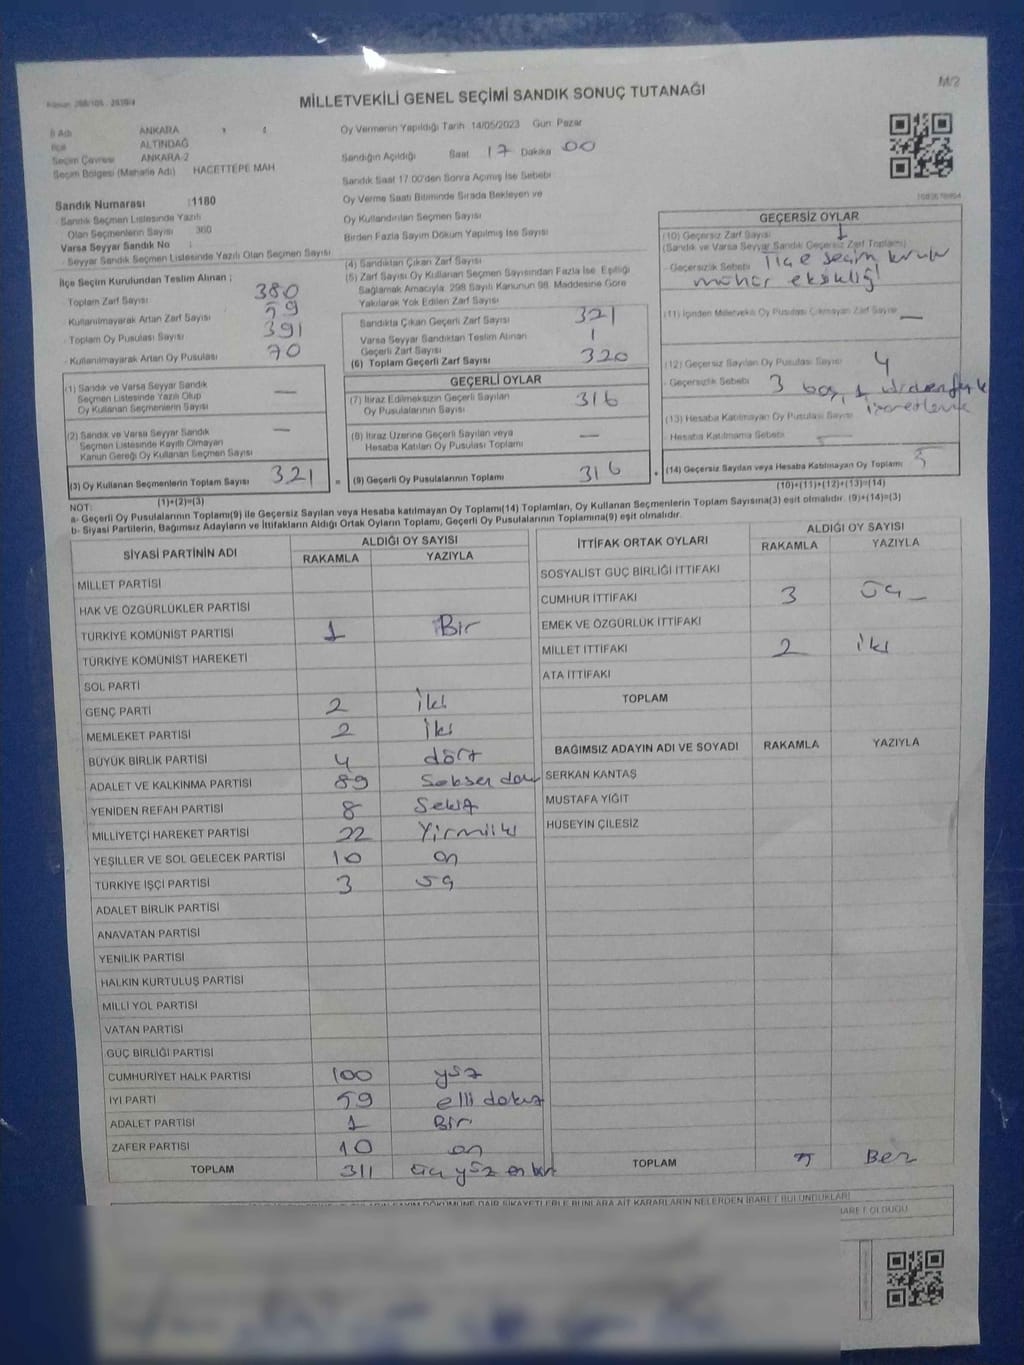 M/2
MİLLETVEKİLİ GENEL SEÇİMİ SANDIK SONUÇ TUTANAĞI
İl Adı ANKARA
İlçe ALTINDAĞ
Seçim Çevresi ANKARA-2
Seçim Bölgesi (Mahalle Adı) HACETTEPE MAH
Sandık Numarası :1180
Sandık Seçmen Listesinde Yazılı
Olan Seçmenlerin Sayısı 360
Varsa Seyyar Sandık No :
Seyyar Sandık Seçmen Listesinde Yazılı Olan Seçmenlerin Sayısı
Oy Vermenin Yapıldığı Tarih 14/05/2023 Gün: Pazar
Sandığın Açıldığı Saat 17 Dakika 00
Sandık Saat 17:00'den Sonra Açılmış İse Sebebi
Oy Verme Saati Bitiminde Sırada Bekleyen ve
Oy Kullandırılan Seçmen Sayısı
Birden Fazla Sayım Döküm Yapılmış İse Sayısı
İlçe Seçim Kurulundan Teslim Alınan ;
Toplam Zarf Sayısı 380
Kullanılmayarak Artan Zarf Sayısı 59
Toplam Oy Pusulası Sayısı 391
Kullanılmayarak Artan Oy Pusulası 70
(1) Sandık ve Varsa Seyyar Sandık
Seçmen Listesinde Yazılı Olup
Oy Kullanan Seçmenlerin Sayısı —
(2) Sandık ve Varsa Seyyar Sandık
Seçmen Listesinde Kayıtlı Olmayan
Kanun Gereği Oy Kullanan Seçmen Sayısı —
(3) Oy Kullanan Seçmenlerin Toplam Sayısı 321
(1)+(2)=(3)
(4) Sandıktan Çıkan Zarf Sayısı
(5) Zarf Sayısı Oy Kullanan Seçmen Sayısından Fazla İse, Eşitliği
Sağlamak Amacıyla, 298 Sayılı Kanunun 98. Maddesine Göre
Yakılarak Yok Edilen Zarf Sayısı
Sandıkta Çıkan Geçerli Zarf Sayısı 321
Varsa Seyyar Sandıktan Teslim Alınan
Geçerli Zarf Sayısı 1
(6) Toplam Geçerli Zarf Sayısı 320
GEÇERLİ OYLAR
(7) İtiraz Edilmeksizin Geçerli Sayılan
Oy Pusulalarının Sayısı 316
(8) İtiraz Üzerine Geçerli Sayılan veya
Hesaba Katılan Oy Pusulası Toplamı —
(9) Geçerli Oy Pusulalarının Toplamı 316
GEÇERSİZ OYLAR
(10) Geçersiz Zarf Sayısı 1
(Sandık ve Varsa Seyyar Sandık Geçersiz Zarf Toplamı)
Geçersizlik Sebebi İlçe seçim kurulu
mühür eksikliği
(11) İçinden Milletvekili Oy Pusulası Çıkmayan Zarf Sayısı —
(12) Geçersiz Sayılan Oy Pusulası Sayısı 4
Geçersizlik Sebebi 3 boş, 1
(13) Hesaba Katılmayan Oy Pusulası Sayısı
Hesaba Katılmama Sebebi —
(14) Geçersiz Sayılan veya Hesaba Katılmayan Oy Toplamı 5
(10)+(11)+(12)+(13)=(14)
NOT:
a- Geçerli Oy Pusulalarının Toplamı(9) ile Geçersiz Sayılan veya Hesaba katılmayan Oy Toplamı(14) Toplamları, Oy Kullanan Seçmenlerin Toplam Sayısına(3) eşit olmalıdır. (9)+(14)=(3)
b- Siyasi Partilerin, Bağımsız Adayların ve İttifakların Aldığı Ortak Oyların Toplamı, Geçerli Oy Pusulalarının Toplamına(9) eşit olmalıdır.
SİYASİ PARTİNİN ADI ALDIĞI OY SAYISI
RAKAMLA YAZIYLA
MİLLET PARTİSİ
HAK VE ÖZGÜRLÜKLER PARTİSİ
TÜRKİYE KOMÜNİST PARTİSİ 1 Bir
TÜRKİYE KOMÜNİST HAREKETİ
SOL PARTİ
GENÇ PARTİ 2 İki
MEMLEKET PARTİSİ 2 İki
BÜYÜK BİRLİK PARTİSİ 4 dört
ADALET VE KALKINMA PARTİSİ 89 Seksen dokuz
YENİDEN REFAH PARTİSİ 8 Sekiz
MİLLİYETÇİ HAREKET PARTİSİ 22 Yirmi iki
YEŞİLLER VE SOL GELECEK PARTİSİ 10 on
TÜRKİYE İŞÇİ PARTİSİ 3 üç
ADALET BİRLİK PARTİSİ
ANAVATAN PARTİSİ
YENİLİK PARTİSİ
HALKIN KURTULUŞ PARTİSİ
MİLLİ YOL PARTİSİ
VATAN PARTİSİ
GÜÇ BİRLİĞİ PARTİSİ
CUMHURİYET HALK PARTİSİ 100 yüz
İYİ PARTİ 59 elli dokuz
ADALET PARTİSİ 1 Bir
ZAFER PARTİSİ 10 on
TOPLAM 311 üç yüz on bir
İTTİFAK ORTAK OYLARI ALDIĞI OY SAYISI
RAKAMLA YAZIYLA
SOSYALİST GÜÇ BİRLİĞİ İTTİFAKI
CUMHUR İTTİFAKI 3 üç
EMEK VE ÖZGÜRLÜK İTTİFAKI
MİLLET İTTİFAKI 2 iki
ATA İTTİFAKI
TOPLAM
BAĞIMSIZ ADAYIN ADI VE SOYADI RAKAMLA YAZIYLA
SERKAN KANTAŞ
MUSTAFA YİĞİT
HÜSEYİN ÇİLESİZ
TOPLAM 5 Beş